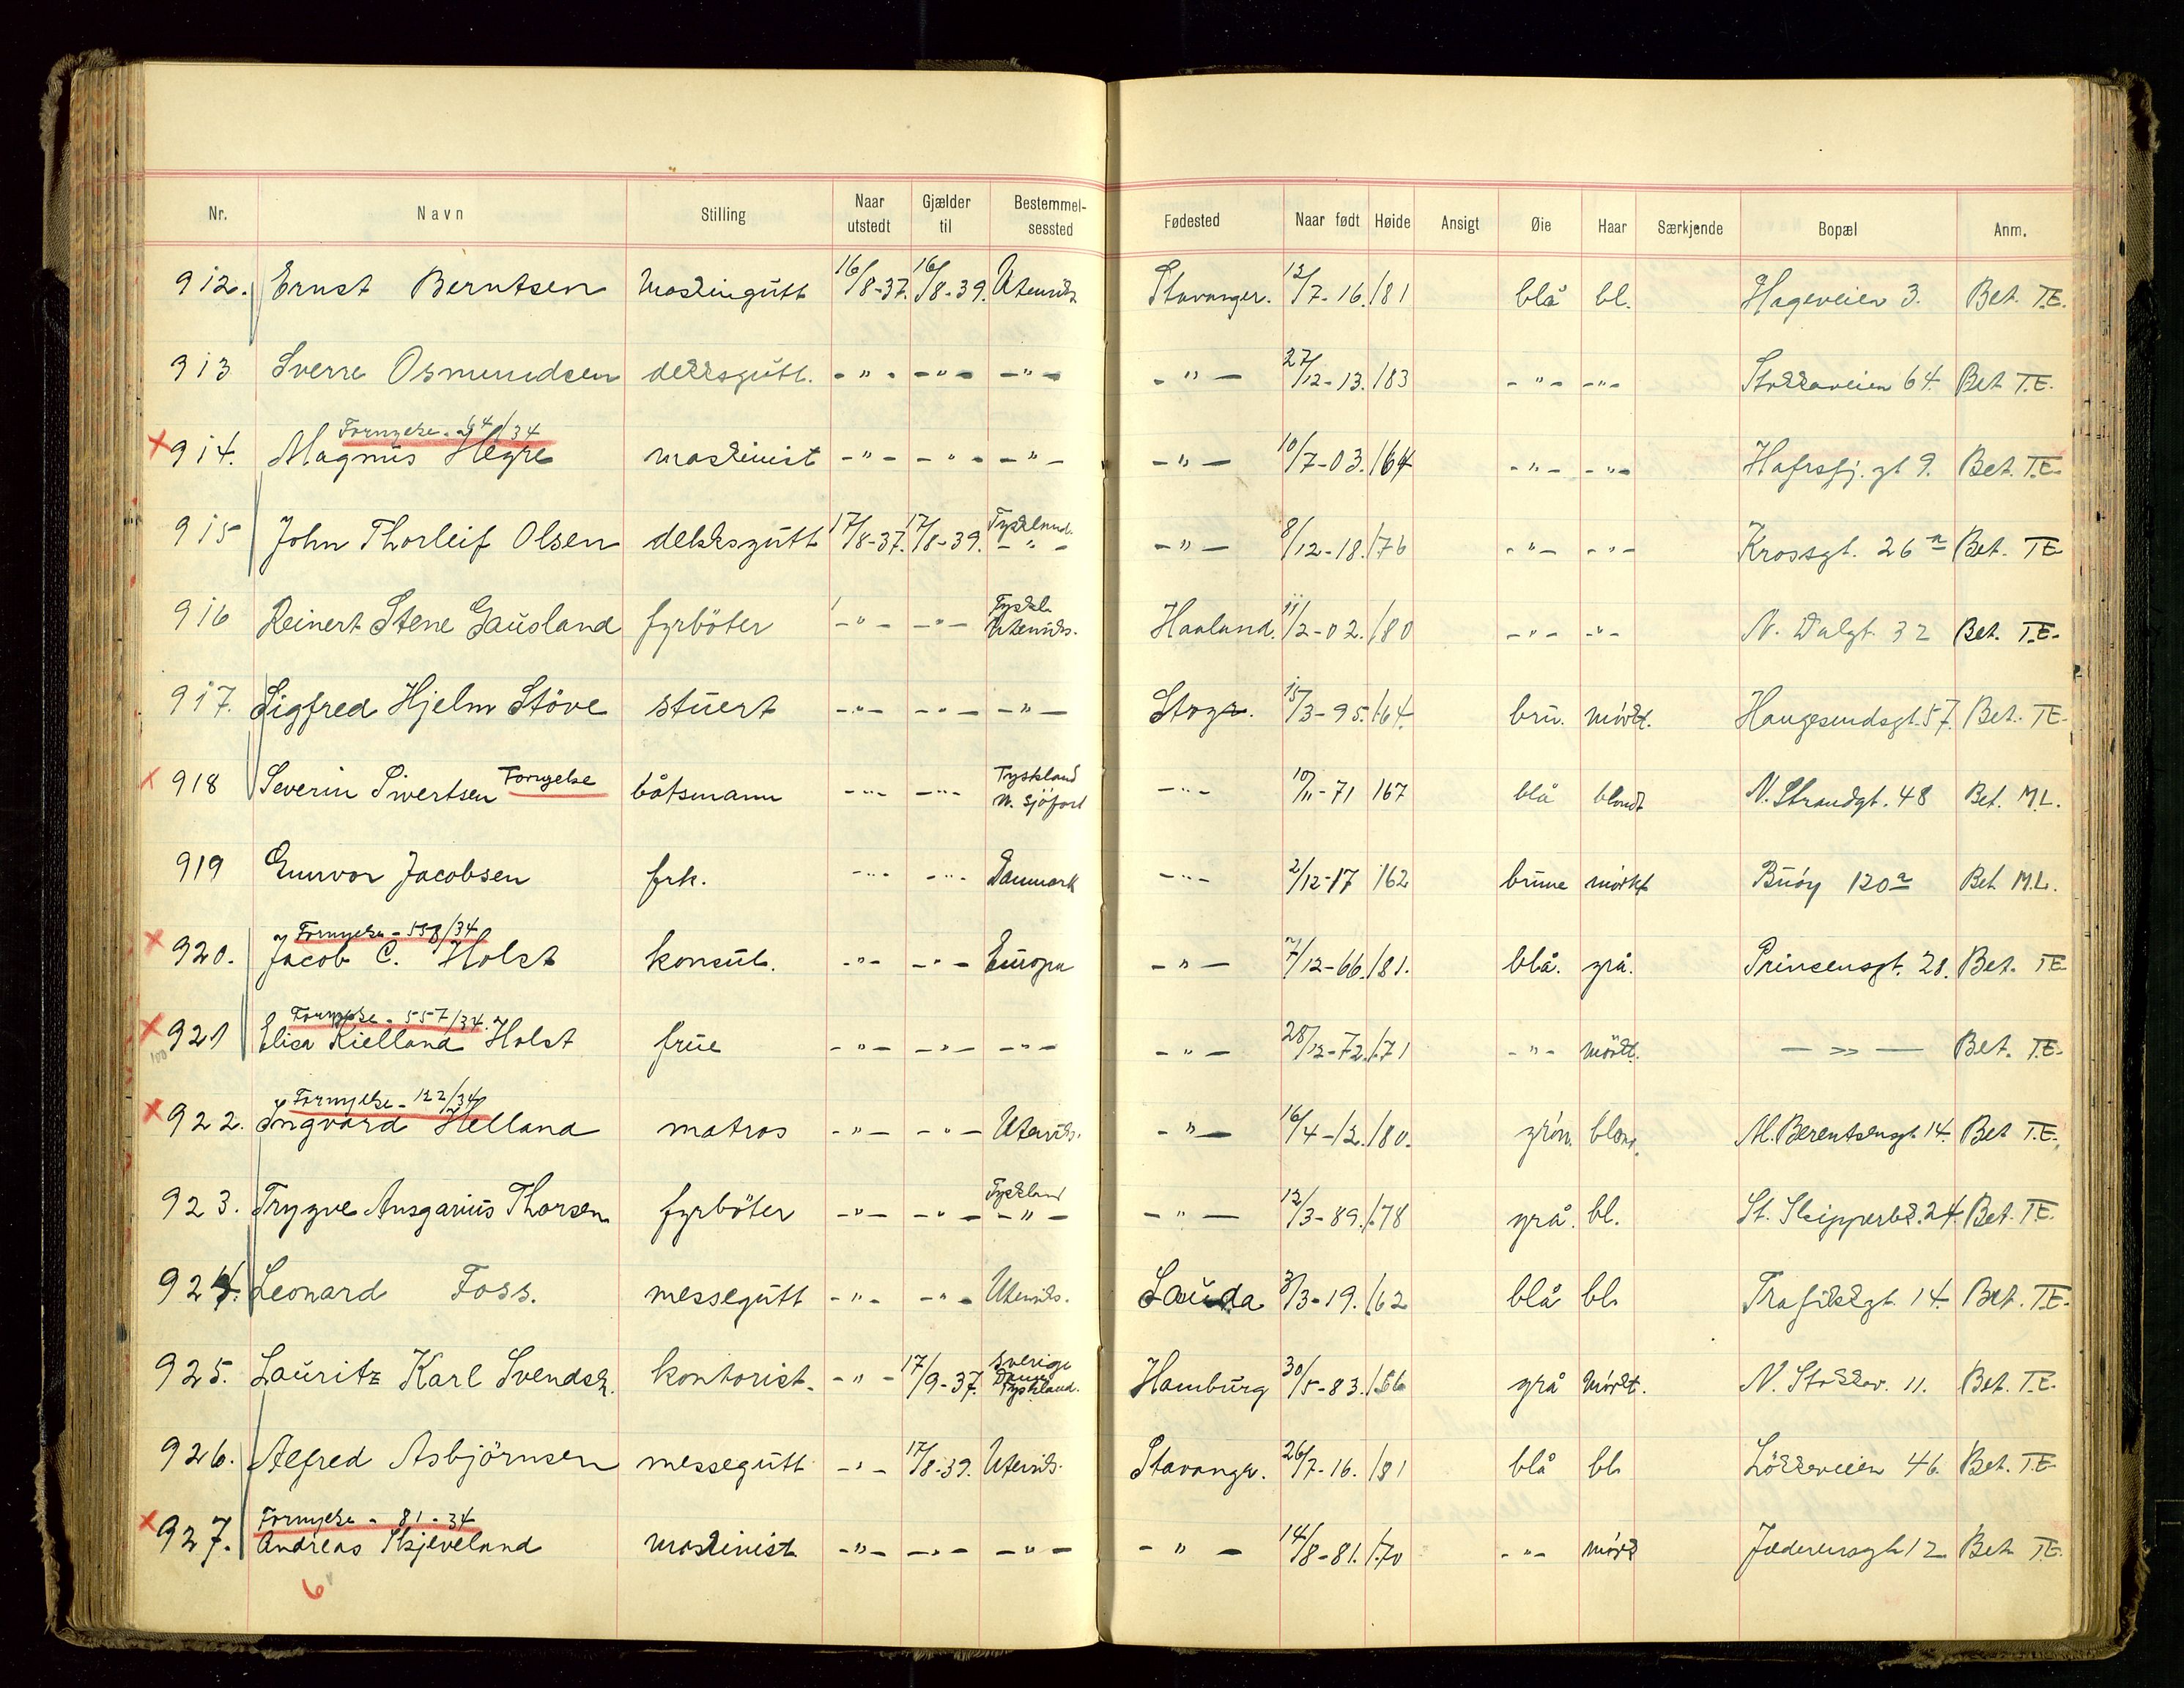 Nr. Navn Stilling Naar utstedt Gjælder til Bestemmel-sessted Fødested Naar født Høide Ansigt Øie Haar Særkjende Bopæl Anm.
912. Ernst Berntsen maskingutt 16/8-37. 16/8-39. Utenriks Stavanger. 12/7-16. 181 blå bl. Hageveien 3. Bet. T.E.
913 Sverre Osmundsen dekksgutt. -"- -"- -"- -"- 27/12-13. 183 -"- -"- Stokkaveien 64. Bet T.E.
Fornyelse - 64/34
914. Magnus Hegre maskinist -"- -"- -"- -"- 10/7-03. 164 -"- -"- Hafrsfj. gt 9. Bet. T.E.
Tyskland.
915 John Thorleif Olsen dekksgutt 17/8-37. 17/8-39. -"- -"- 8/12-18. 176 -"- -"- Krossgt. 26a Bet. TE
Tyskl.
916 Reinert Stene Gausland fyrböter -"- -"- Utenriks. Haaland. 11/2-02. 180 -"- -"- N. Dalgt. 32 Bet. T.E.
917. Sigfred Hjelm Störe stuert -"- -"- -"- Stvgr. 15/3-95. 164. bru. mörkt. Haugesundsgt. 57. Bet. TE.
Fornyelse Tyskland
918 Severin Sivertsen båtsmann -"- -"- m. sjöfart -"- 10/11-71 167 blå blondt N. Strandgt. 48 Bet. M.L.
919 Gunvor Jacobsen frk. -"- -"- Danmark -"- 2/12-17 162 brune mörkt Buöy 120a Bet M.L.
Fornyelse - 558/34
920. Jacob C. Holst konsul. -"- -"- Europa -"- 7/12-66. 181. blå. grå. Prinsensgt. 28. Bet. TE
Fornyelse - 557/34.
921 Elisa Kielland Holst frue -"- -"- -"- -"- 28/12-72. 171 -"- mörkt. -"- Bet. T.E.
100
Fornyelse - 122/34
922. Ingvard Helland matros -"- -"- Utenriks. -"- 16/4-12. 180. grön. blond. Al. Berentsensgt. 14. Bet T.E.
Tyskland
923. Trygve Ansgarius Thorsen fyrböter -"- -"- -"- -"- 12/3-89. 178 grå. bl. St. Skipperbk. 24. Bet. T.E.
924. Leonard Foss. messegutt -"- -"- Utenriks. Sauda 3/3-19. 162 blå bl. Trafikkgt. 14. Bet. T.E.
Sverige
925. Lauritz Karl Svendsen. kontorist. -"- 17/9-37. Danm. Hamburg 30/5-83. 166 grå mörkt. N. Stokkav. 11. Bet. T.E.
Tyskland.
926. Alfred Asbjörnsen messegutt -"- 17/8-39. Utenriks. Stavanger. 26/7-16. 181 blå bl. Lökkeveien 46. Bet. T.E.
Fornyelse - 81-34
927. Andreas Skjeveland maskinist -"- -"- -"- -"- 14/8-81. 170 -"- mörk Jaderensgt 12. Bet. T.E.
6